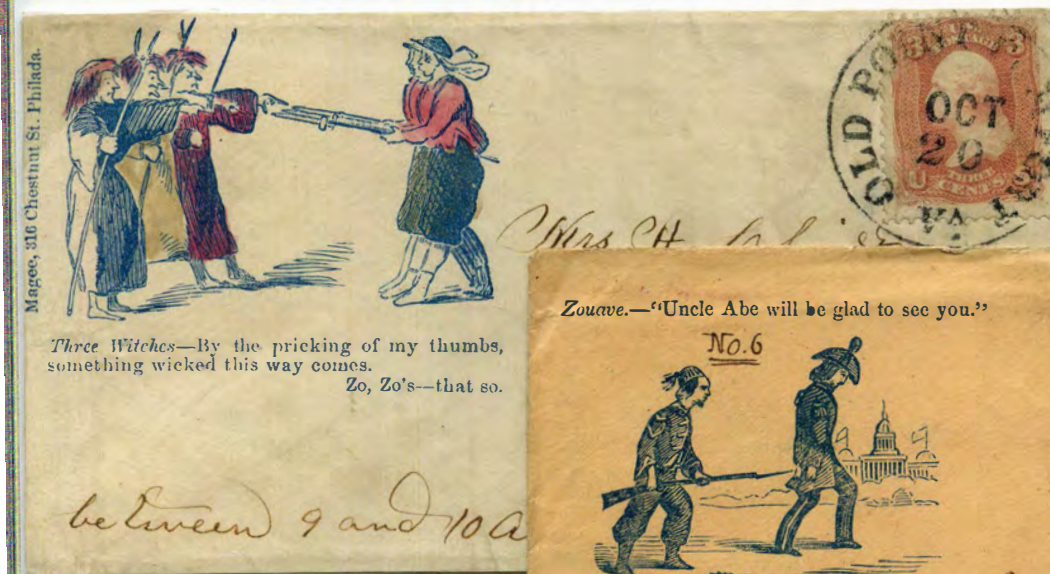 Magee, 316 Chestnut St. Philada.
OLD POINT
OCT
20
VA
3 3
U
THREE
CENTS
Mrs H.
Three Witches—By the pricking of my thumbs,
something wicked this way comes.
Zo, Zo's—that so.
between 9 and 10 a
Zouave.—“Uncle Abe will be glad to see you.”
No. 6